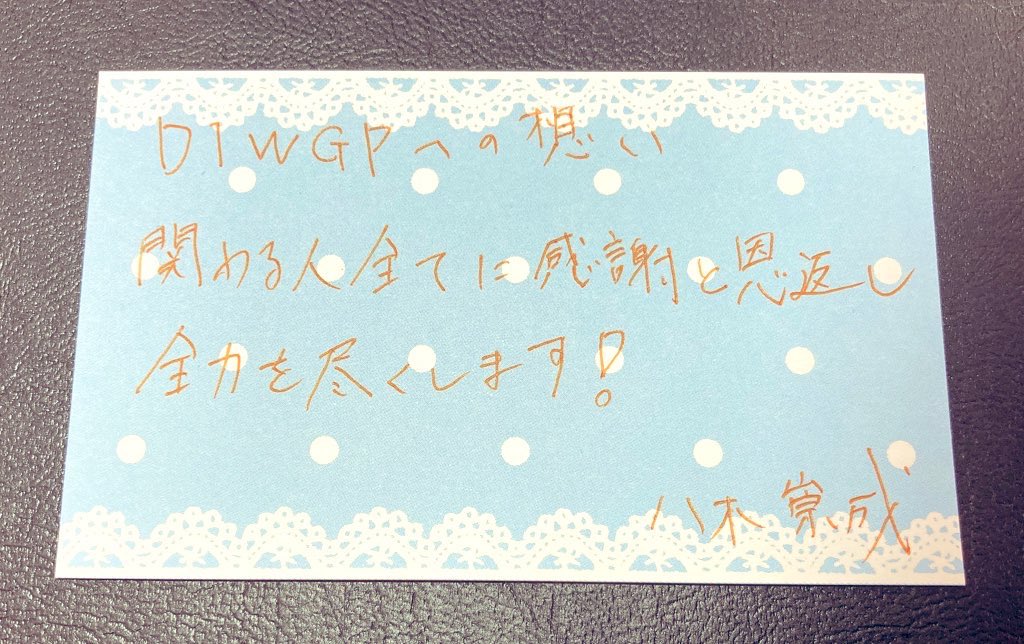 D1WGPへの想い
関わる人全てに感謝と恩返し
全力を尽くします!
八木崇成